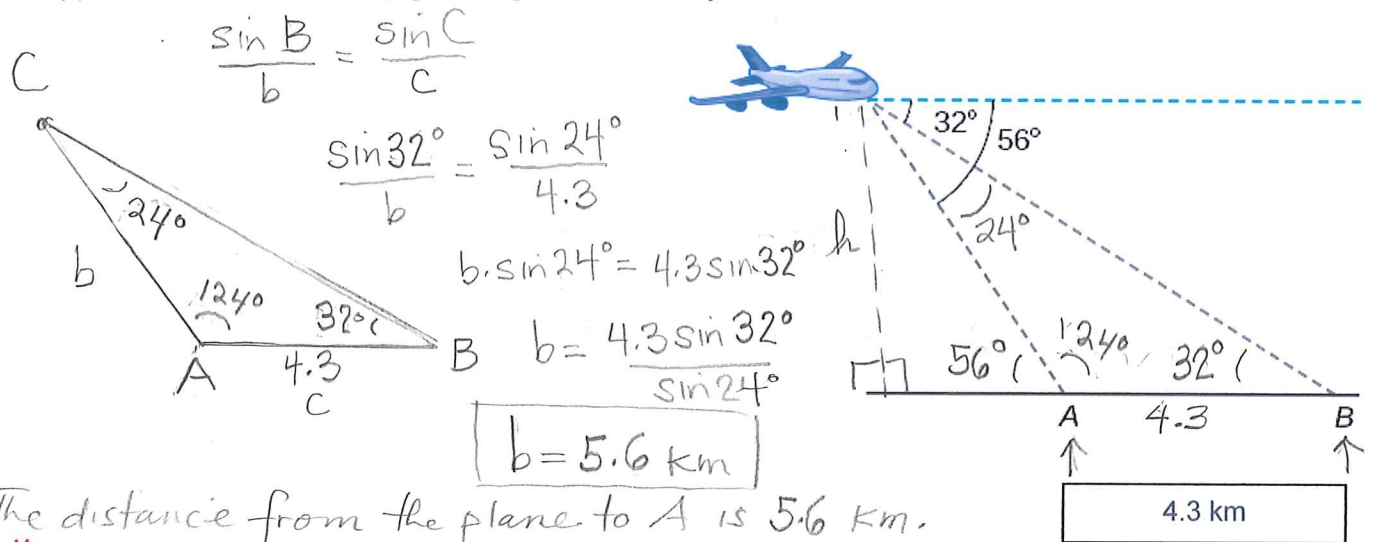 sin B / b = sin C / c
C
sin32° / b = sin 24° / 4.3
24°
b
124°
32°
A
4.3
c
B
b·sin24° = 4.3sin32°
b = 4.3 sin 32° / sin24°
b = 5.6 km
The distance from the plane to A is 5.6 km.
32°
56°
24°
h
56°
124°
32°
A
4.3
B
4.3 km